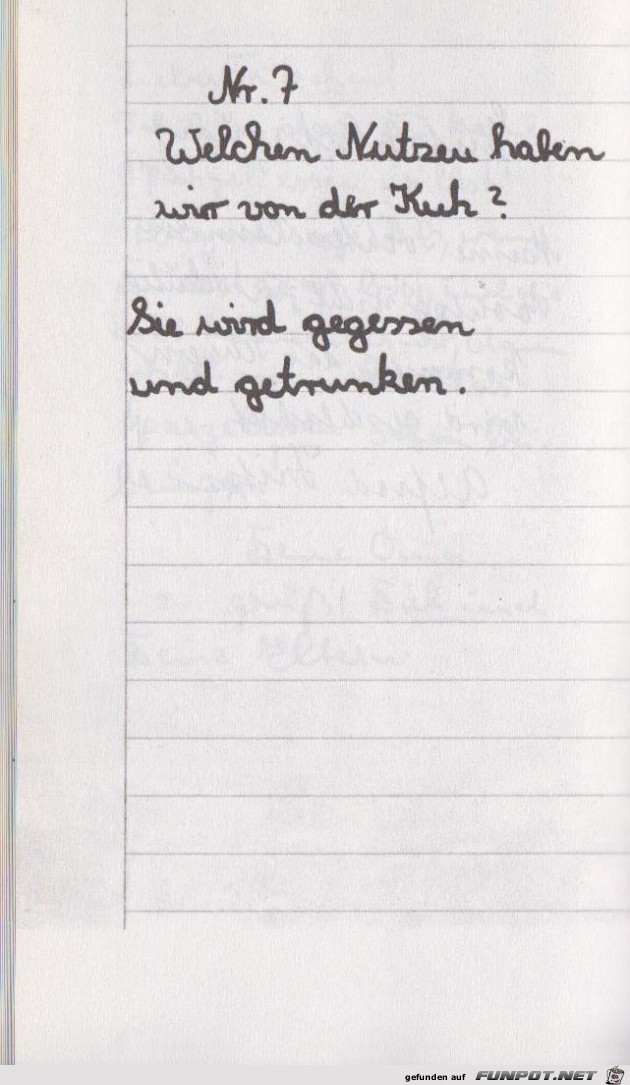 Nr. 7
Welchen Nutzen haben
wir von der Kuh?
Sie wird gegessen
und getrunken.
gefunden auf FUNPOT.NET